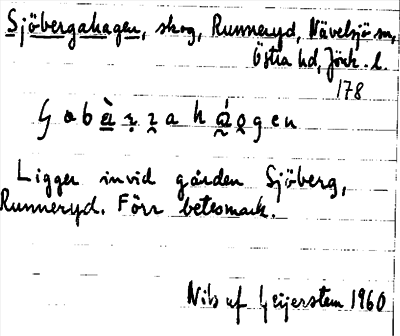 Sjöbergahagen, skog, Runneryd, Nävelsjö sn,
Östra hd, Jönk. l.
178
Ligger invid gården Sjöberg,
Runneryd. Förr betesmark.
Nils af Geijerstam 1960